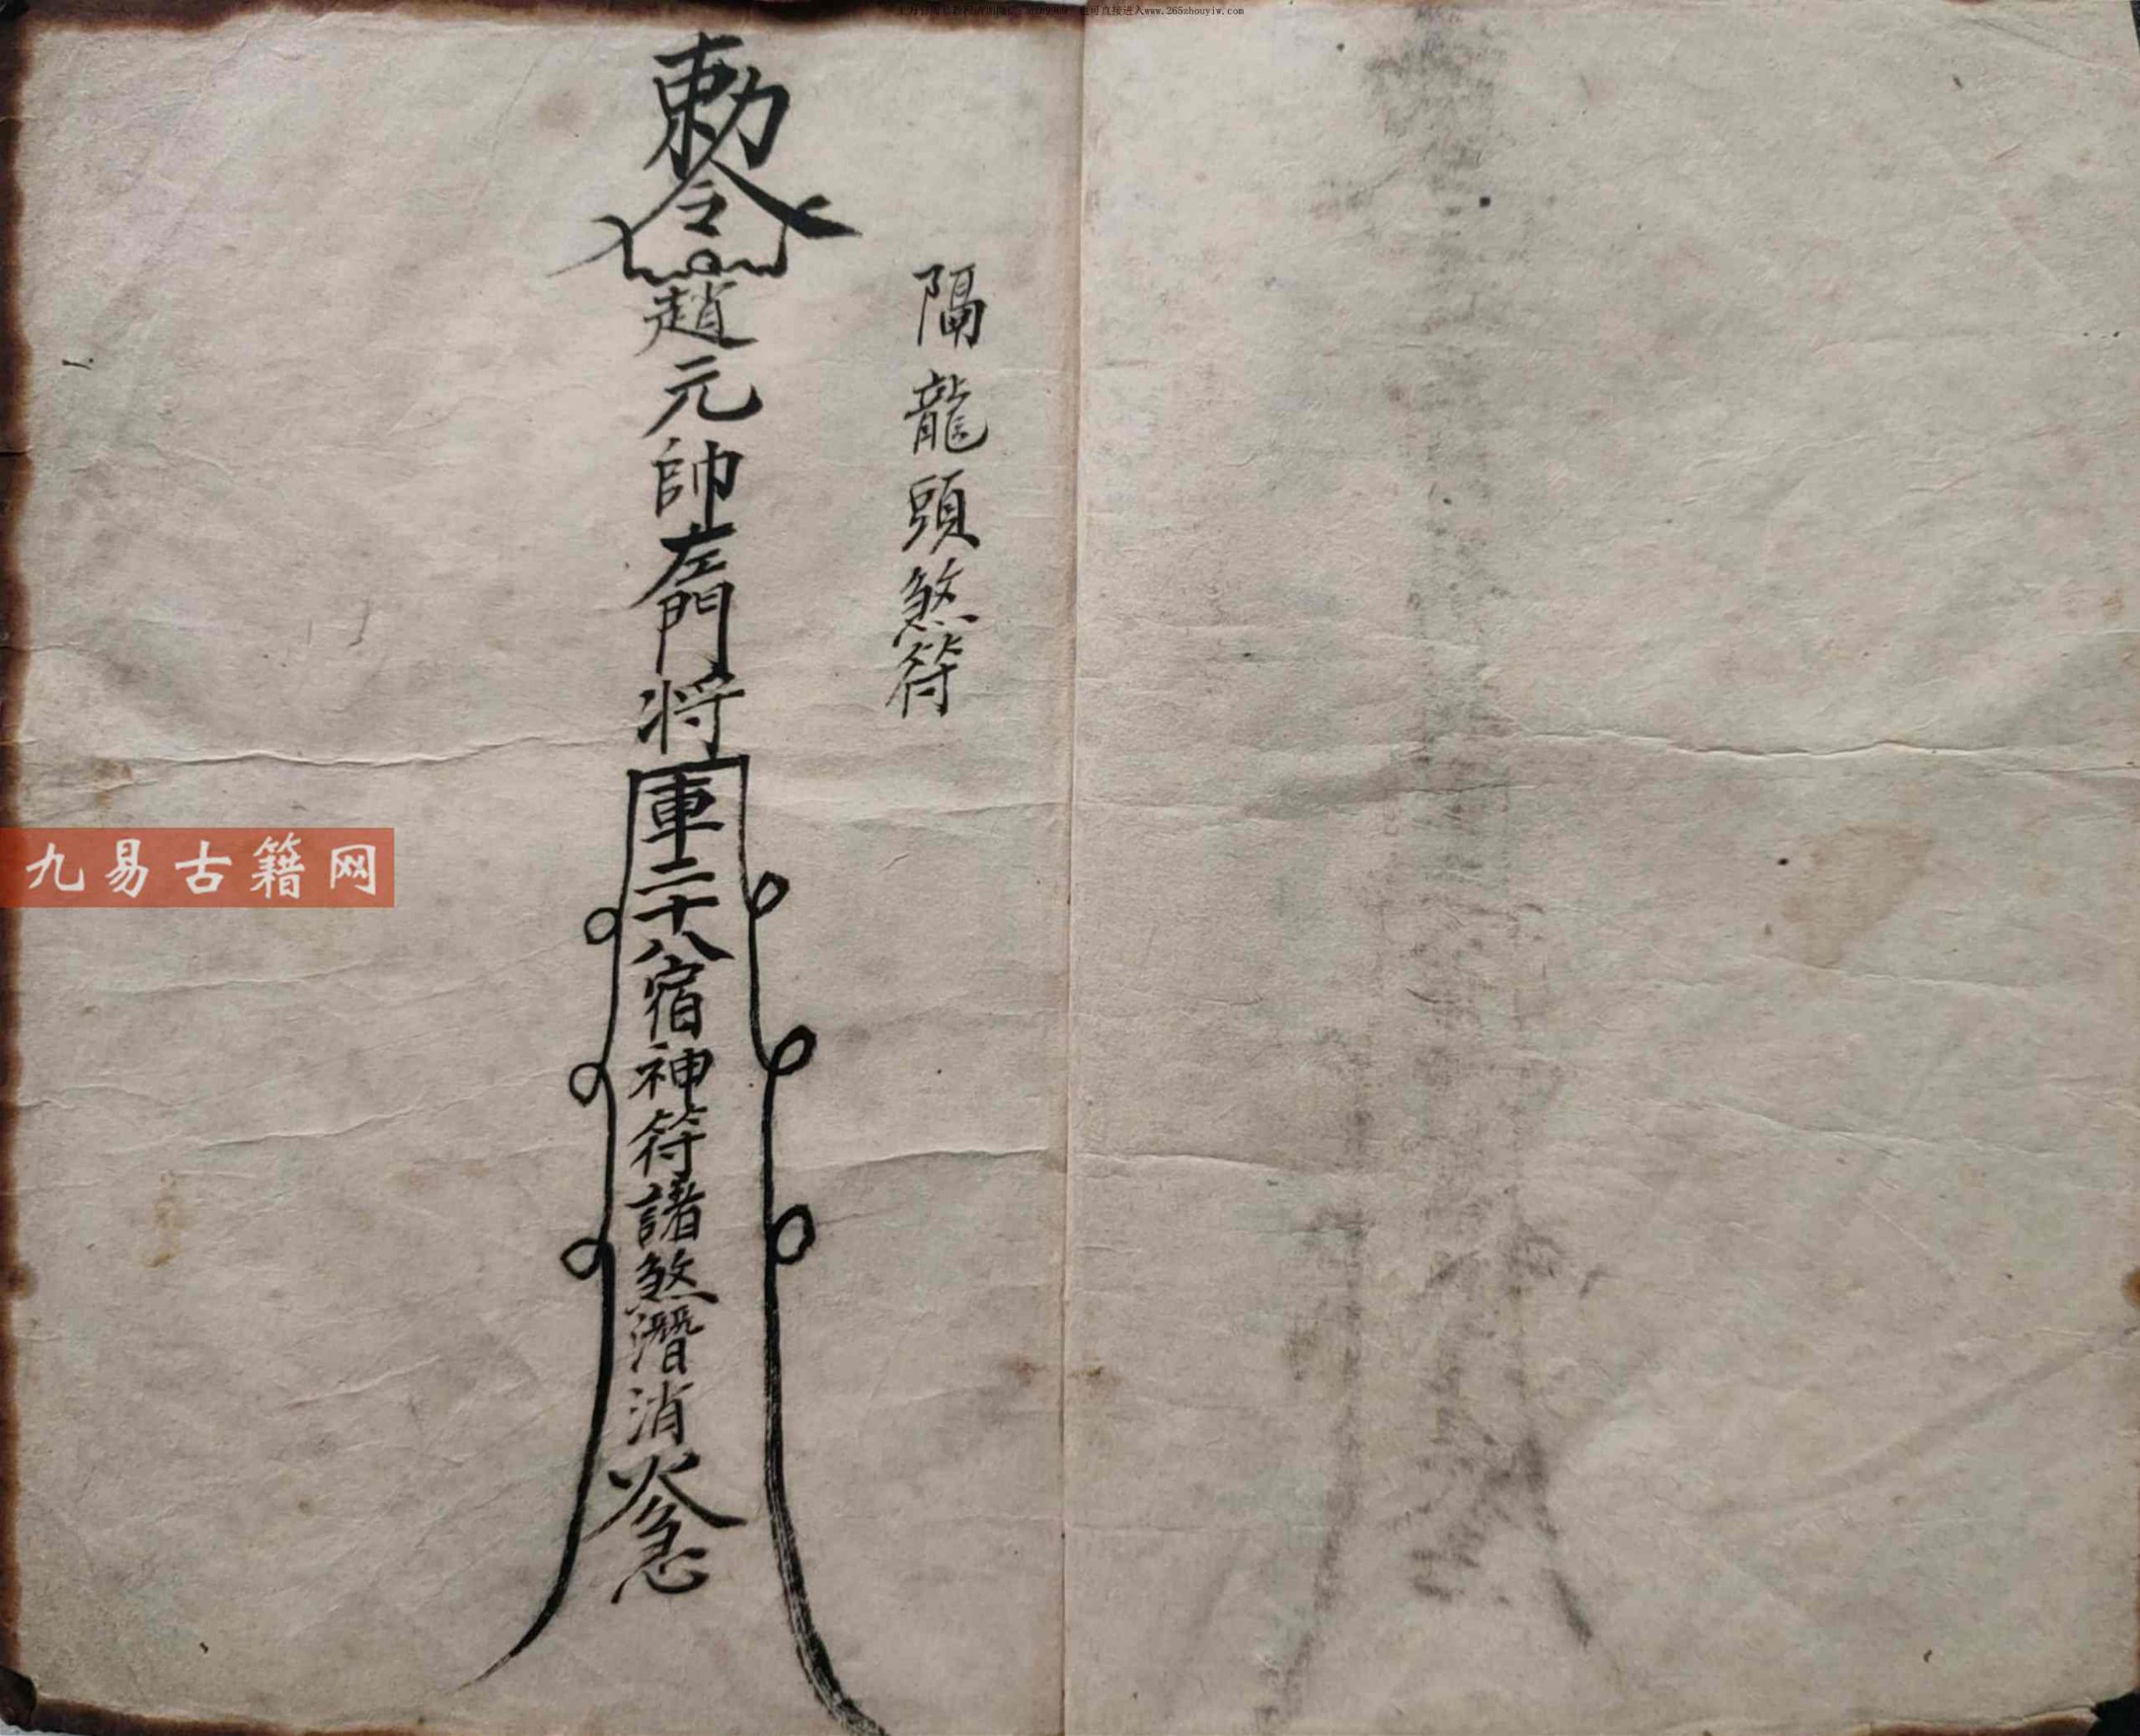 隔龍頭煞符
勅令趙元帥左門將軍二十八宿神符諸煞潛消火急
九易古籍网
www.265zhouyiw.com